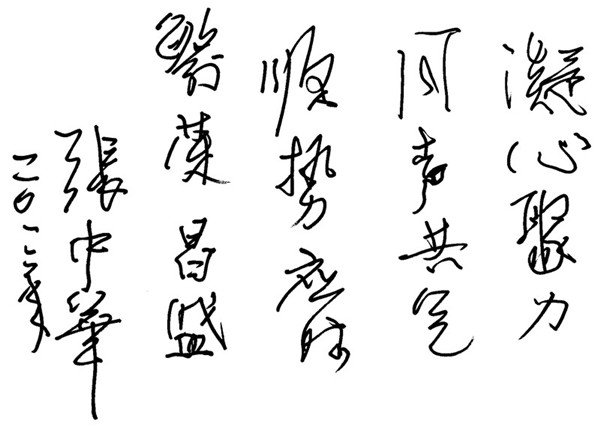 凝心聚力
同声共气
顺势应时
繁荣昌盛
張中華
二〇一二年